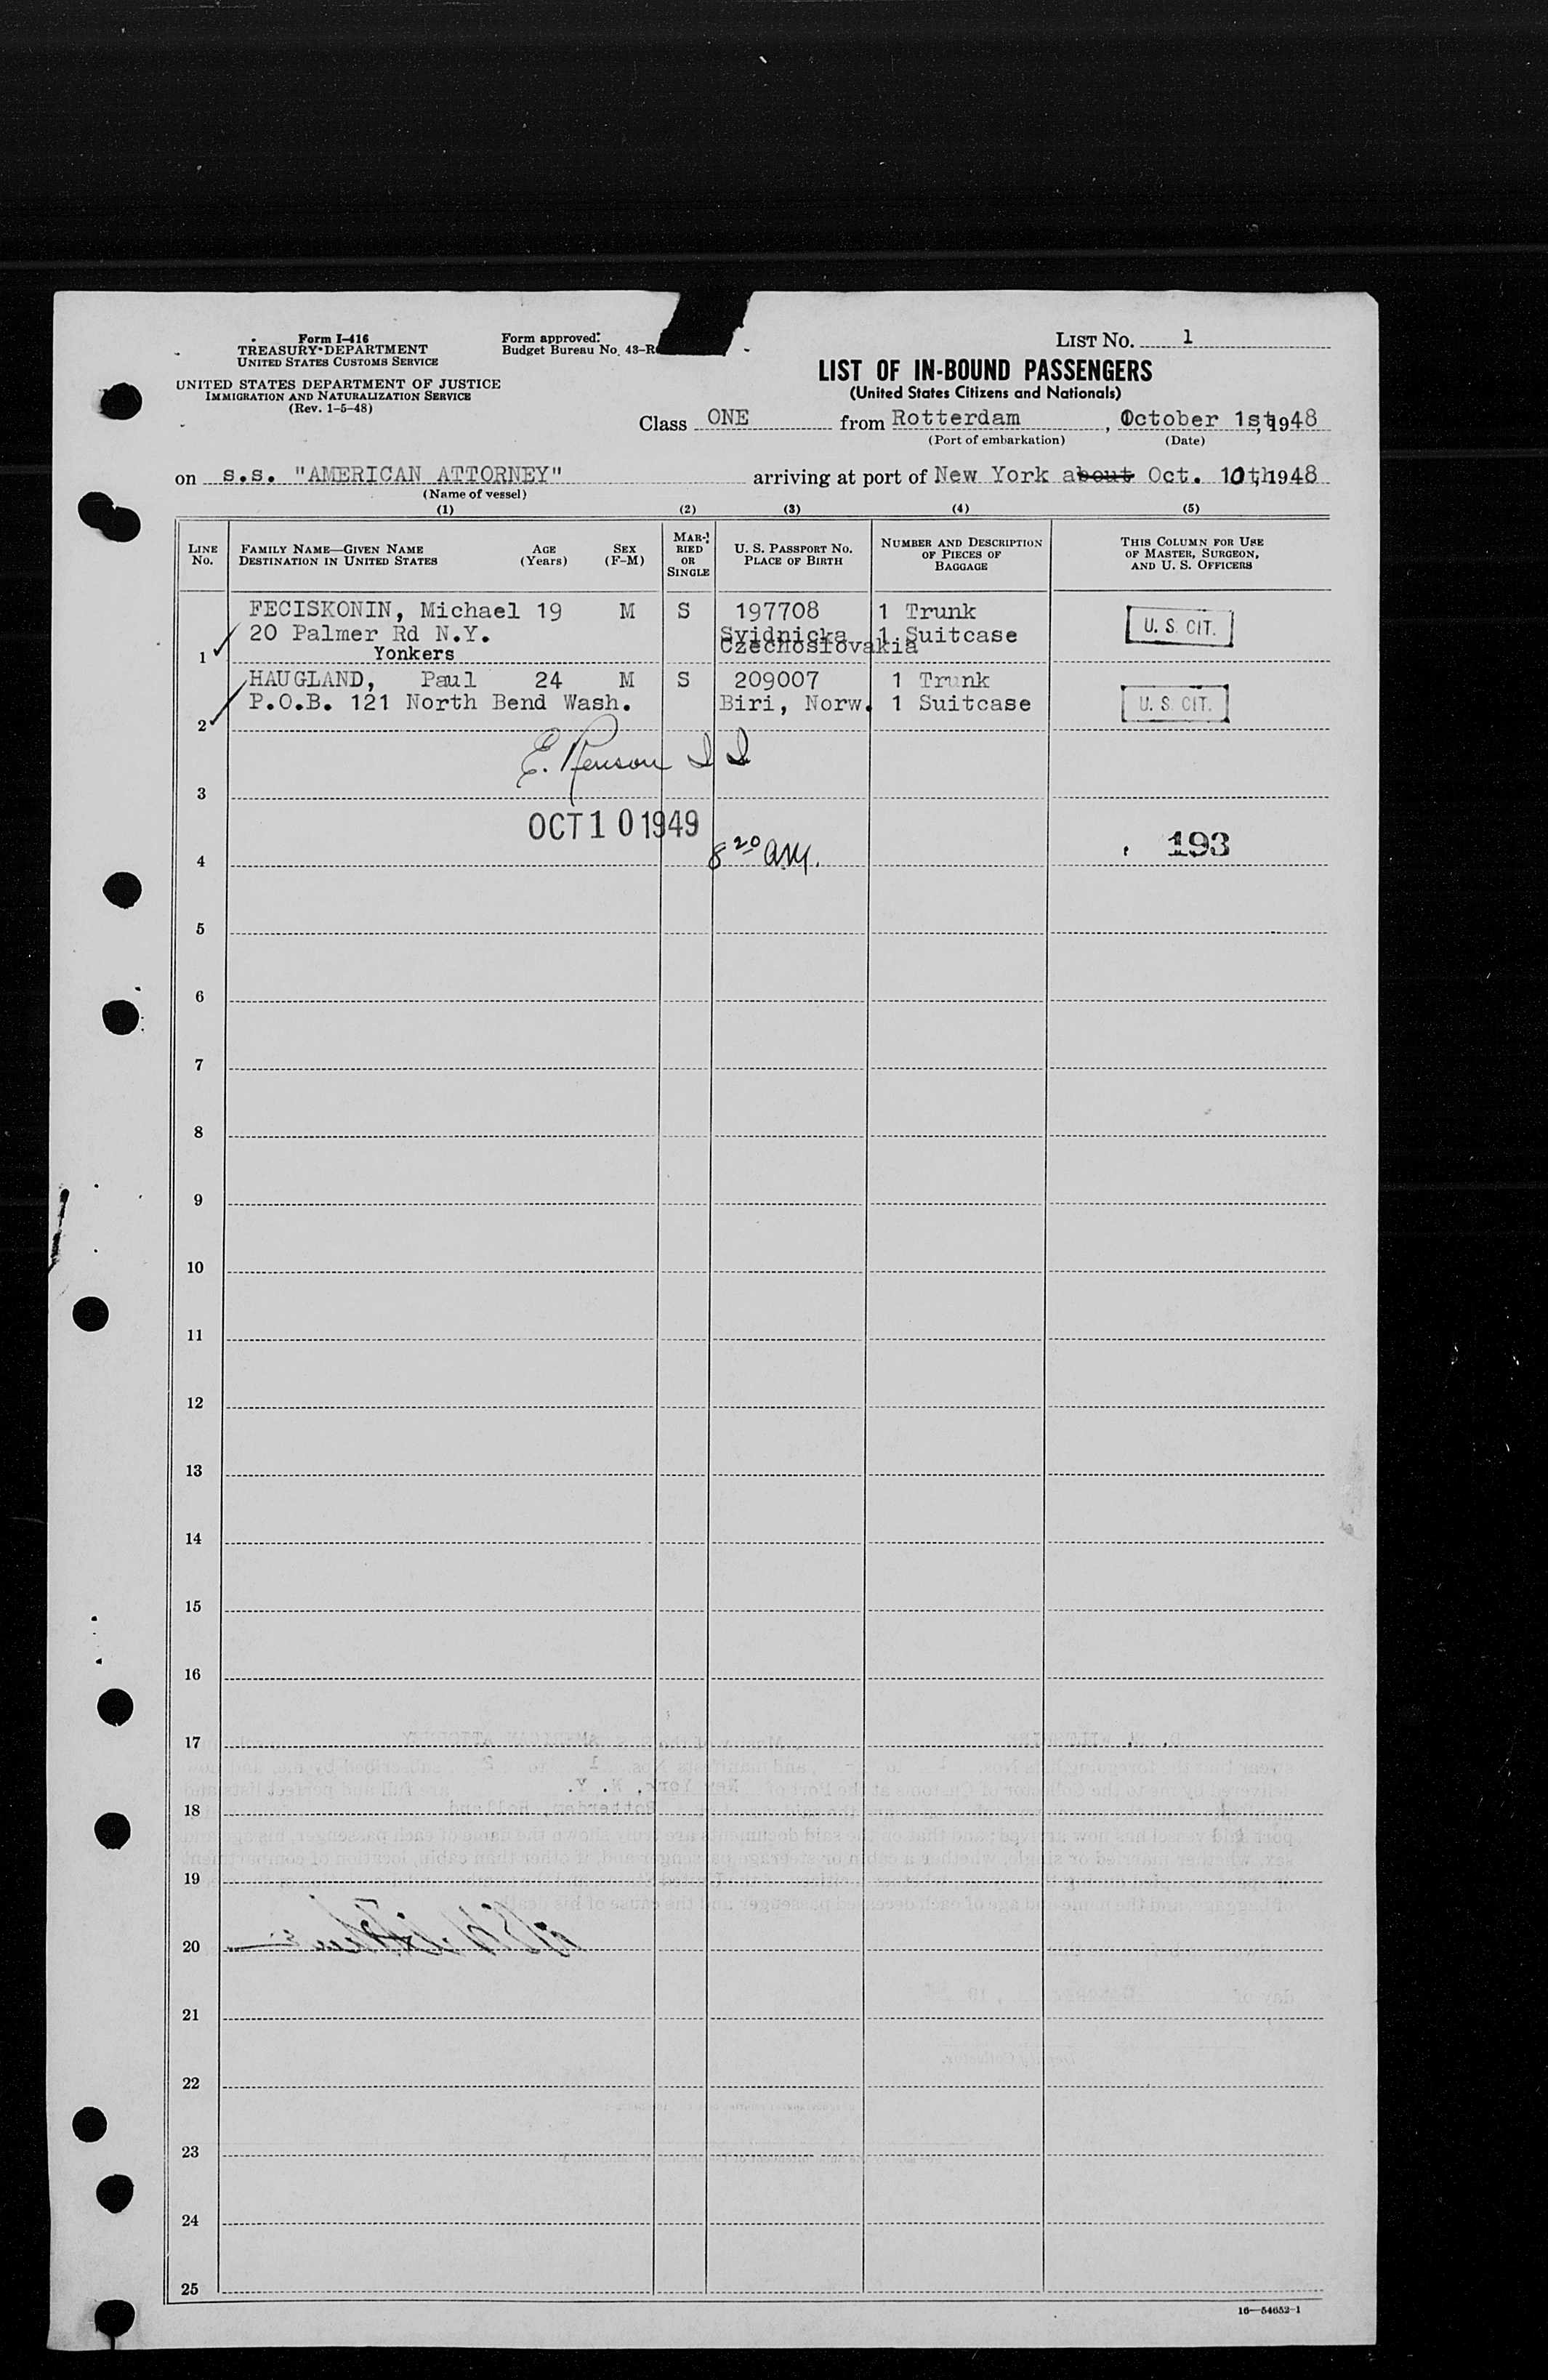 Form I-416
TREASURY DEPARTMENT
UNITED STATES CUSTOMS SERVICE
UNITED STATES DEPARTMENT OF JUSTICE
IMMIGRATION AND NATURALIZATION SERVICE
(Rev. 1-5-48)
Form approved.
Budget Bureau No. 43-R
LIST NO. 1
LIST OF IN-BOUND PASSENGERS
(United States Citizens and Nationals)
Class ONE from Rotterdam, October 1st, 1948
(Port of embarkation) (Date)
on s.s. "AMERICAN ATTORNEY" arriving at port of New York about Oct. 10th, 1948
(Name of vessel)
(1) (2) (3) (4) (5)
LINE NO.
FAMILY NAME—GIVEN NAME
DESTINATION IN UNITED STATES
AGE (Years)
SEX (F-M)
MARRIED OR SINGLE
U. S. PASSPORT NO.
PLACE OF BIRTH
NUMBER AND DESCRIPTION OF PIECES OF BAGGAGE
THIS COLUMN FOR USE OF MASTER, SURGEON, AND U. S. OFFICERS
FECISKONIN, Michael 19 M S 197708 1 Trunk
20 Palmer Rd N.Y. Svidnicka 1 Suitcase U. S. CIT.
1 Yonkers Czechoslovakia
HAUGLAND, Paul 24 M S 209007 1 Trunk
P.O.B. 121 North Bend Wash. Biri, Norw. 1 Suitcase U. S. CIT.
2
E. Renson I I
3
OCT 10 1949
8 20 am. 193
4
5
6
7
8
9
10
11
12
13
14
15
16
17
18
19
20
21
22
23
24
25
16—54652-1